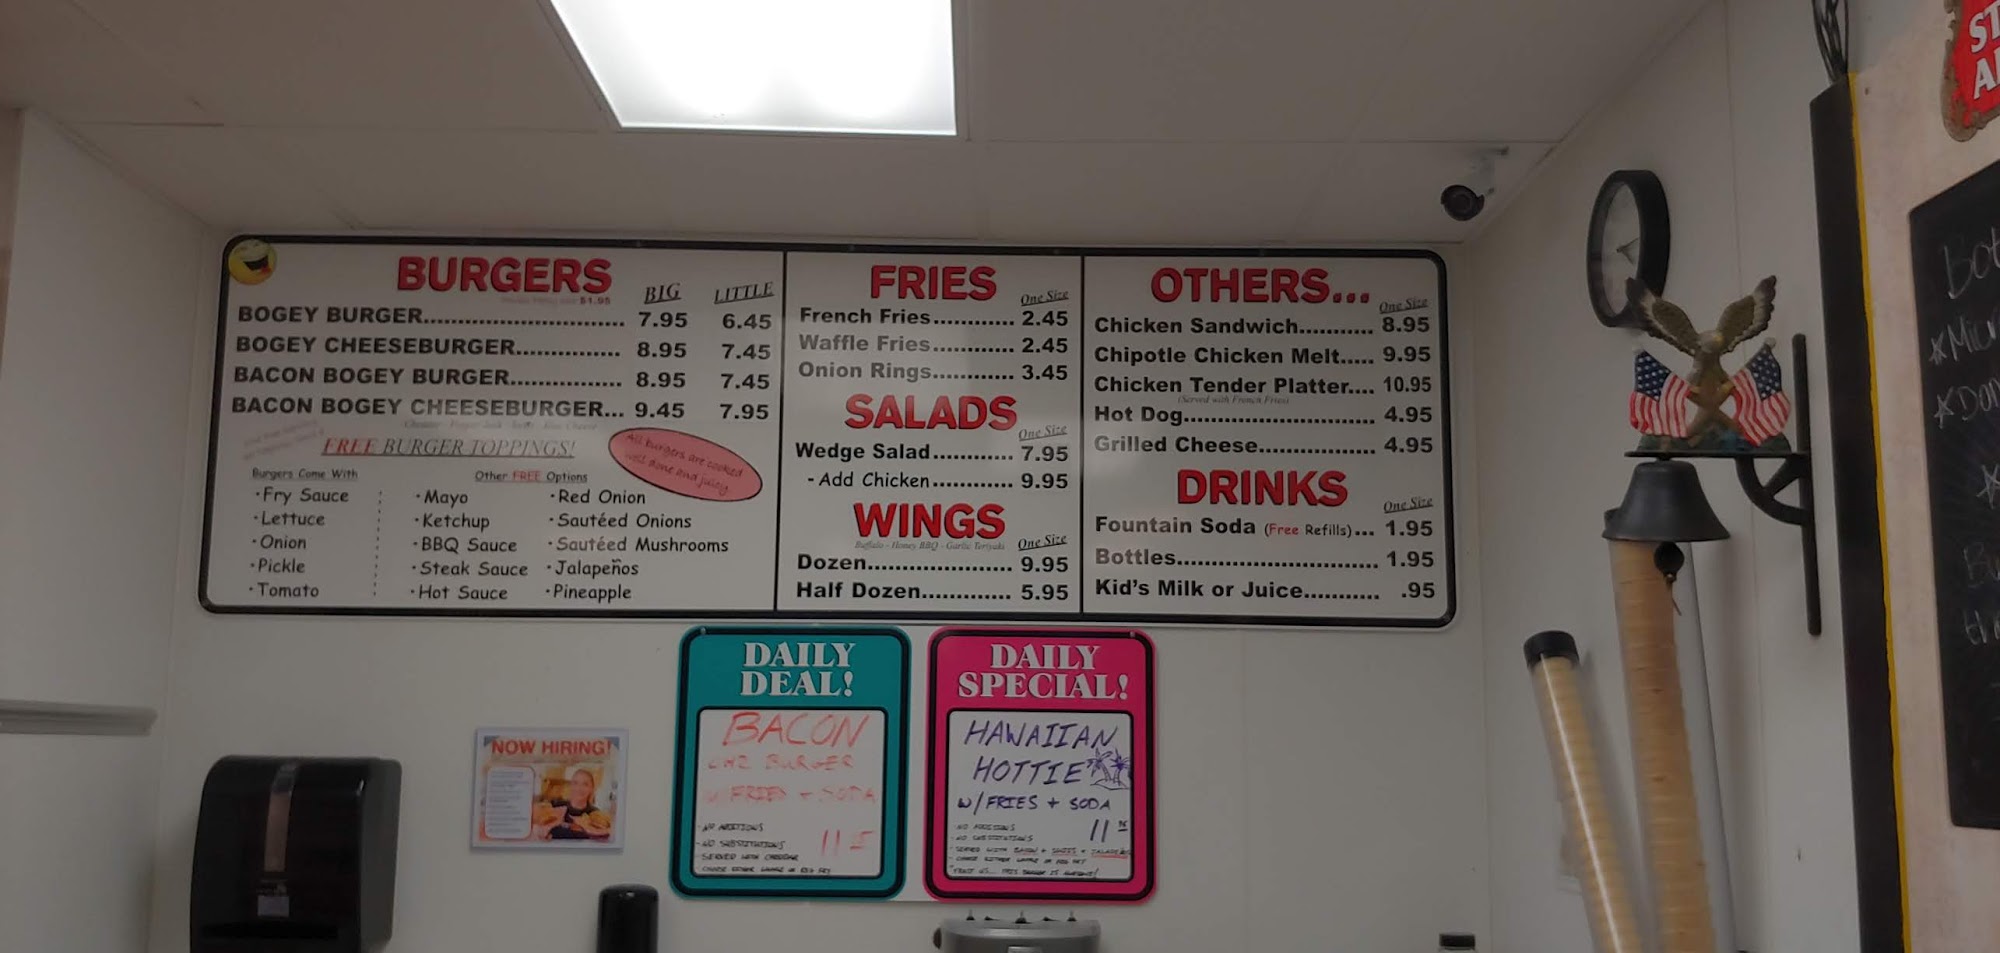 BURGERS
$1.95
BIG LITTLE
BOGEY BURGER............................. 7.95 6.45
BOGEY CHEESEBURGER............... 8.95 7.45
BACON BOGEY BURGER................ 8.95 7.45
BACON BOGEY CHEESEBURGER... 9.45 7.95
FREE BURGER TOPPINGS!
All burgers are cooked
well done and juicy
Burgers Come With
·Fry Sauce
·Lettuce
·Onion
·Pickle
·Tomato
Other FREE Options
·Mayo ·Red Onion
·Ketchup ·Sautéed Onions
·BBQ Sauce ·Sautéed Mushrooms
·Steak Sauce ·Jalapeños
·Hot Sauce ·Pineapple
FRIES
One Size
French Fries............ 2.45
Waffle Fries............ 2.45
Onion Rings............ 3.45
SALADS
One Size
Wedge Salad............ 7.95
- Add Chicken............ 9.95
WINGS
Buffalo - Honey BBQ - Garlic Teriyaki
One Size
Dozen..................... 9.95
Half Dozen............. 5.95
OTHERS...
One Size
Chicken Sandwich........... 8.95
Chipotle Chicken Melt..... 9.95
Chicken Tender Platter.... 10.95
(Served with French Fries)
Hot Dog............................ 4.95
Grilled Cheese................. 4.95
DRINKS
One Size
Fountain Soda (Free Refills)... 1.95
Bottles............................. 1.95
Kid's Milk or Juice........... .95
DAILY
DEAL!
BACON
CHZ BURGER
W/FRIES + SODA
11
- NO ADDITIONS
- NO SUBSTITUTIONS
- SERVED WITH CHEDDAR
DAILY
SPECIAL!
HAWAIIAN
HOTTIE
W/FRIES + SODA
11
- NO ADDITIONS
- NO SUBSTITUTIONS
NOW HIRING!